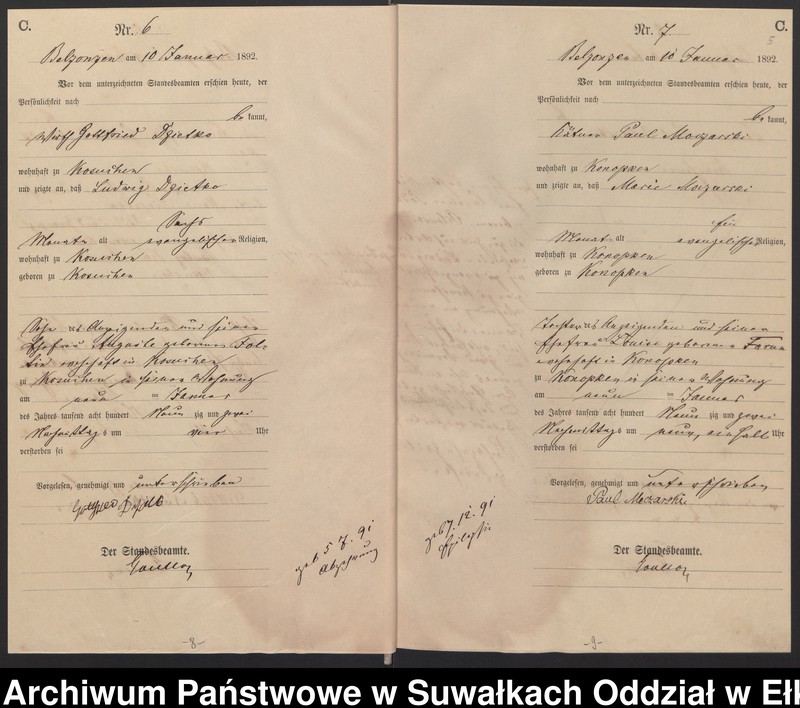 C.
Nr. 6
Belzonzen am 10 Januar 1892.
Vor dem unterzeichneten Standesbeamten erschien heute, der
Persönlichkeit nach
be kannt,
Wirt Gottfried Dzietko
wohnhaft zu Kosuchen
und zeigte an, daß Ludwig Dzietko
Sechs
Monate alt evangelischer Religion,
wohnhaft zu Kosuchen
geboren zu Kosuchen
Sohn des Anzeigenden und seiner
Ehefrau Auguste geborenen
wohnhaft in Kosuchen
zu Kosuchen in seiner Wohnung
am neun ten Januar
des Jahres tausend acht hundert Neun zig und zwei
Nachmittags um vier Uhr
verstorben sei
Vorgelesen, genehmigt und unterschrieben
Der Standesbeamte.
geb 5 7. 91
Abzehrung
-8-
C.
Nr. 7
Belzonzen am 10 Januar 1892.
Vor dem unterzeichneten Standesbeamten erschien heute, der
Persönlichkeit nach
be kannt,
Kätner Paul Moczarski
wohnhaft zu Konopken
und zeigte an, daß Marie Moczarski
Ein
Monat alt evangelischer Religion,
wohnhaft zu Konopken
geboren zu Konopken
Tochter des Anzeigenden und seiner
Ehefrau Louise geborenen
wohnhaft in Konopken
zu Konopken in seiner Wohnung
am neun ten Januar
des Jahres tausend acht hundert Neun zig und zwei
Nachmittags um neun, einhalb Uhr
verstorben sei
Vorgelesen, genehmigt und unterschrieben
Paul Moczarski
Der Standesbeamte.
geb 7. 12. 91
Epilepsie
-9-
Archiwum Państwowe w Suwałkach Oddział w Ełk